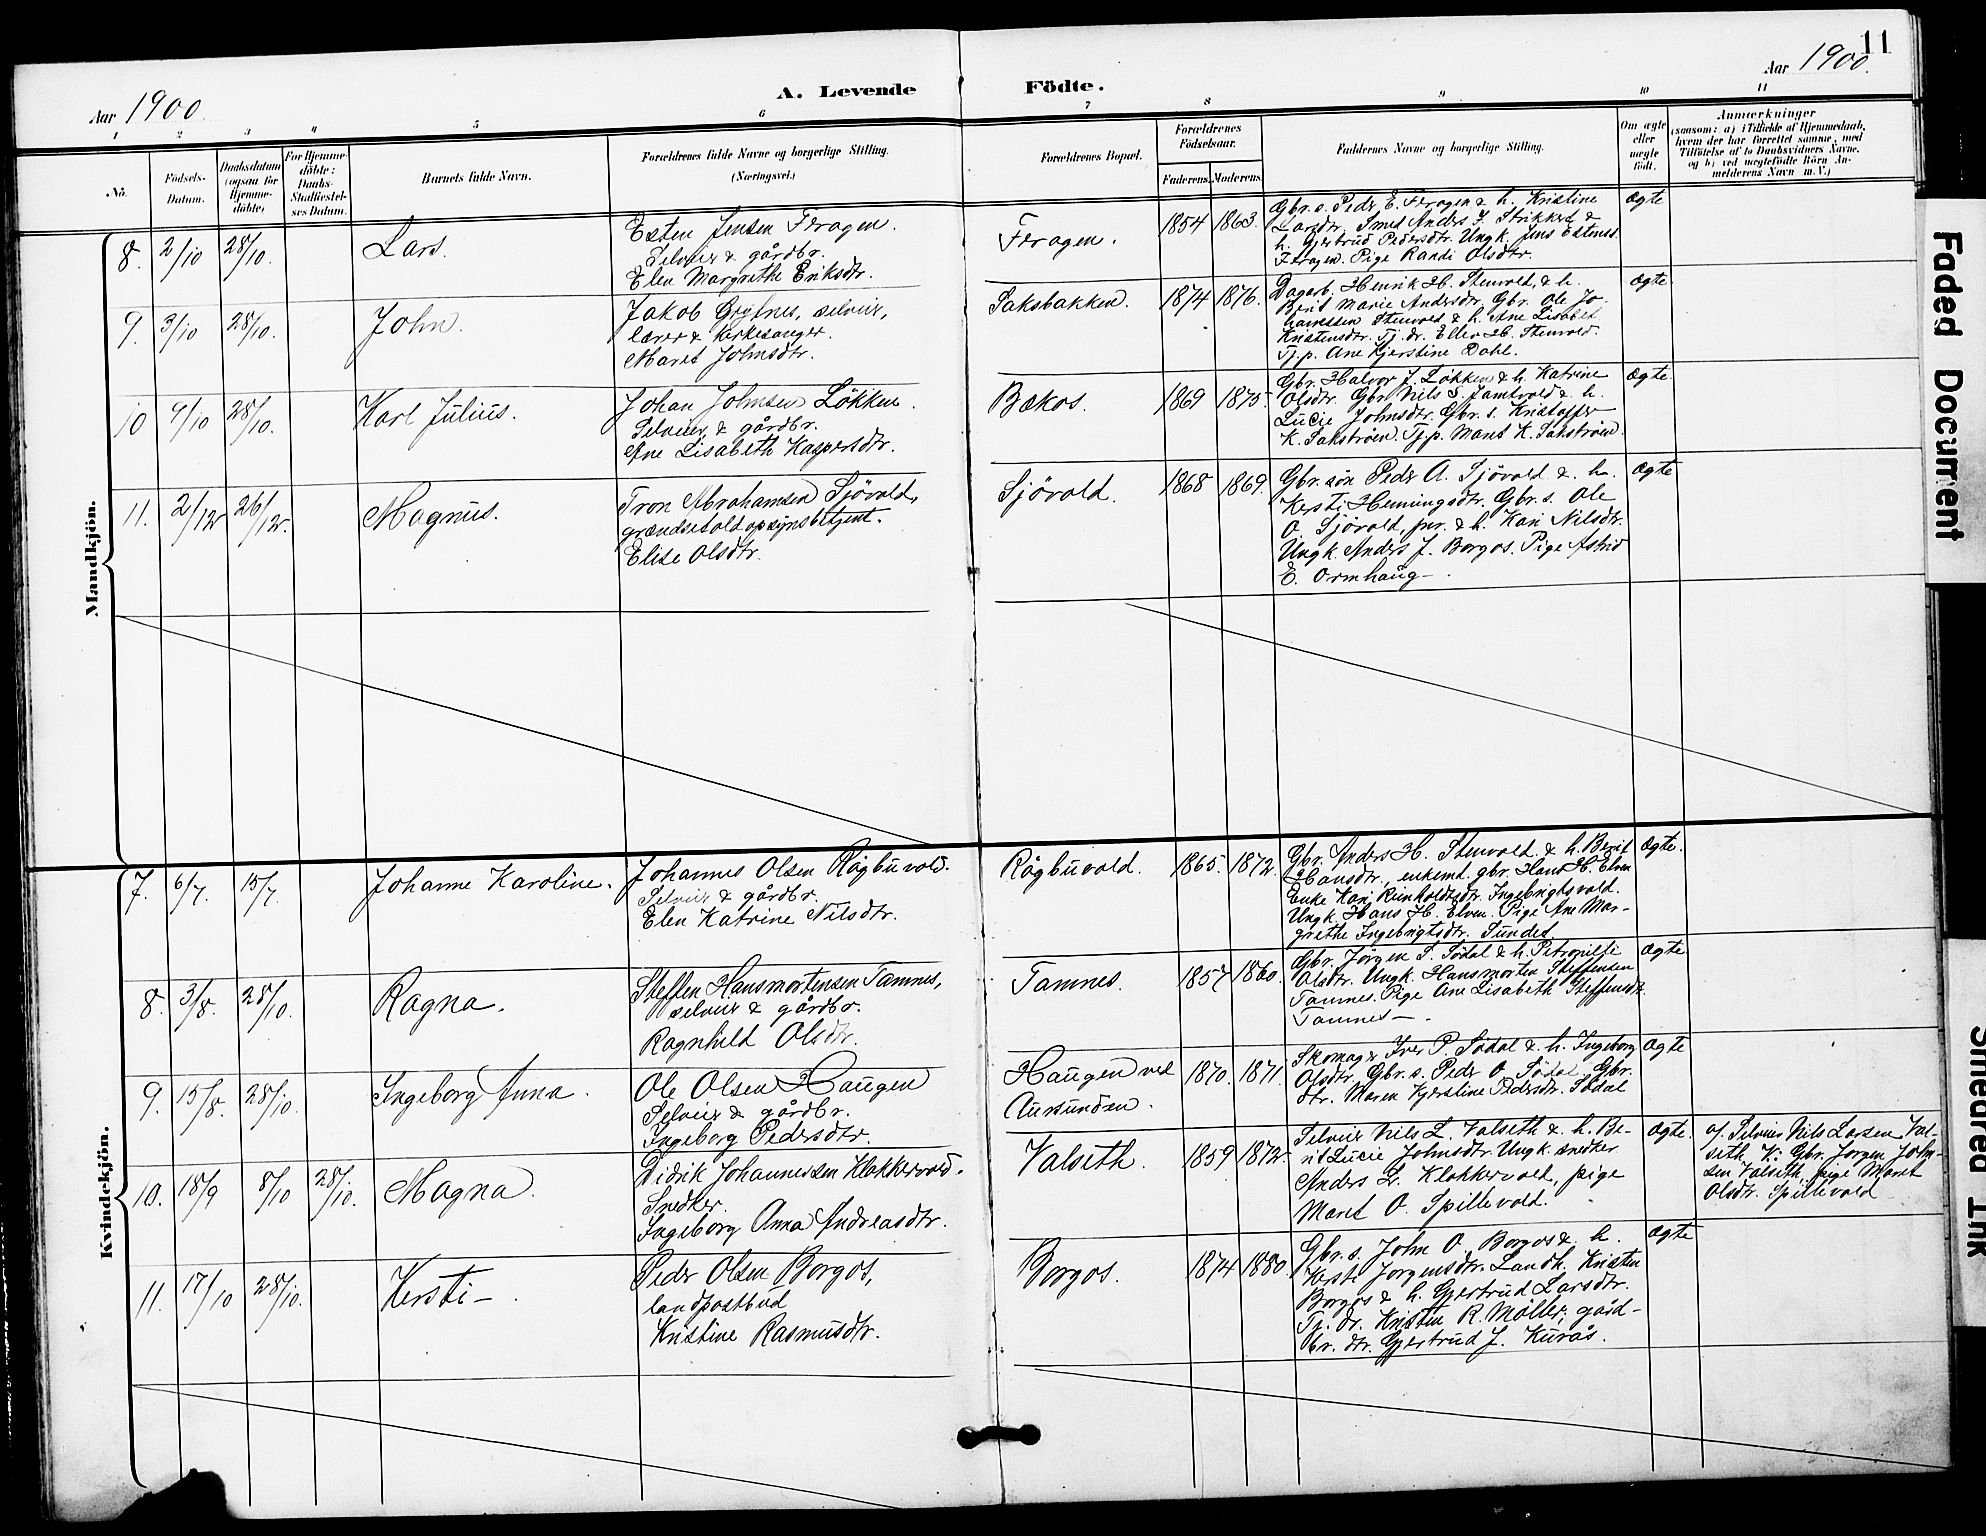 11
Aar 1900.
A. Levende Födte.
Aar 1900.
1 2 3 4 5 6 7 8 9 10 11
No.
Födsels-
Datum.
Daabsdatum
(ogsaa for
Hjemme-
döbte)
For Hjemme-
döbte:
Daabs-
Stadfæstel-
ses Datum.
Barnets fulde Navn.
Forældrenes fulde Navne og borgerlige Stilling.
(Næringsvei.)
Forældrenes Bopæl.
Forældrenes
Födselsaar.
Faderens. Moderens.
Faddernes Navne og borgerlige Stilling.
Om ægte
eller
uægte
födt.
Anmærkninger
(saasom: a) i Tilfælde af Hjemmedaab,
hvem der har forrettet samme, med
Tilföielse af to Daabsvidners Navne,
og b) ved uegtefödte Börn An-
melderens Navn m. V.)
Mandkjön.
8. 2/10 28/10. Lars.
Esten Jensen Feragen.
Selveier & gårdbr.
Elen Margrethe Eriksdtr.
Feragen. 1854 1863.
Gbr. s. Peder E. Feragen & h. Kristine
Larsdtr. Smed Anders J. Strikkert &
h. Gjertrud Pedersdtr. Ungk. Jens Estenss.
Feragen. Pige Randi Olsdtr.
Ægte
9. 3/10 28/10. John.
Jakob Grytnes, selveier,
lærer & kirkesanger.
Maret Johnsdtr.
Saksbakken. 1874 1876.
Dagarb. Henrik H. Stenvold, & h.
Berit Marie Andersdtr. Gbr. Ole Jo-
hannessen Stenvold & h. Ane Lisabet
Kristensdtr. Tj. dr. Ellev H. Stenvold.
Tj.p. Ane Kjerstine Dahl.
Ægte
10 9/10 28/10. Karl Julius.
Johan Johnsen Løkken.
Selveier & gårdbr.
Ane Lisabeth Kaspersdtr.
Bækos. 1869 1875.
Gbr. Halvor J. Løkken & h. Katrine
Olsdtr. Gbr. Nils S. Jamtvold & h.
Lucie Johnsdtr. Gbr. s. Kristoffer
K. Sakstrøen. Tj.p. Maret K. Sakstrøen.
Ægte.
11. 2/12 26/12. Magnus.
Tron Abrahamsen Sjövold,
grændsetoldopsynsbetjent.
Elise Olsdtr.
Sjövold. 1868 1869.
Gbr. søn Peder A. Sjövold & h.
Kersti Henningsdtr. Gbr. s. Ole
O. Sjövold, jnr. & h. Kari Nilsdtr.
Ungk. Anders J. Borgos. Pige Astrid
E. Ormhaug.
Ægte
Kvindekjön.
7. 6/7. 15/7. Johanne Karoline.
Johannes Olsen Rågbuvold.
Selveier & gårdbr.
Elen Katrine Nilsdtr.
Rågbuvold. 1865. 1872.
Gbr. Anders H. Stenvold & h. Berit
Hansdtr., enkemd. gbr. Hans H. Elven
Enke Kari Reinholdtsdtr. Ingebrigtsvold.
Ungk. Hans H. Elven. Pige Ane Mar-
grethe Ingebrigtsdtr. Sundet.
Ægte.
8. 3/8. 28/10. Ragna.
Steffen Hansmortensen Tamnes,
selveier & gårdbr.
Ragnhild Olsdtr.
Tamnes. 1857 1860.
Gbr. Jörgen S. Södal & h. Petronille
Olsdtr. Ungk. Hansmorten Steffensen
Tamnes. Pige Ane Lisabeth Steffensdtr.
Tamnes.
Ægte
9. 15/8. 28/10. Ingeborg Anna.
Ole Olsen Haugen
Selveier & gårdbr.
Ingeborg Pedersdtr.
Haugen ved
Aursunden.
1870. 1871.
Skomager Iver P. Södal & h. Ingeborg
Olsdtr. Gbr. s. Peder O. Södal. Gbr.
dtr. Maren Kjerstine Pedersdtr. Södal
Ægte
10. 18/9 8/10 28/10. Magna.
Didrik Johannessen Klokkervold.
Snedker.
Ingeborg Anna Andreasdtr.
Valseth. 1859 1872.
Selveier Nils L. Valseth & h. Be-
rit Lucie Johnsdtr. Ungk. snedker
Anders L. Klokkervold, pige
Maret O. Spillevold.
Ægte.
a/. Selveier Nils Larsen Val-
seth. V: Gbr. Jörgen John-
sen Valseth, pige Maret
Olsdtr. Spillevold
11. 17/10 28/10. Kersti
Peder Olsen Borgos,
landpostbud
Kristine Rasmusdtr.
Borgos. 1874 1880.
Gbr. s. John O. Borgos & h.
Kersti Jorgensdtr. Landh. Kristen
Borgos & h. Gjertrud Larsdtr.
Tj. dr. Kristen R. Möller; gård-
br. dtr. Gjertrud J. Kurås.
Ægte
Faded Document
Smeared Ink